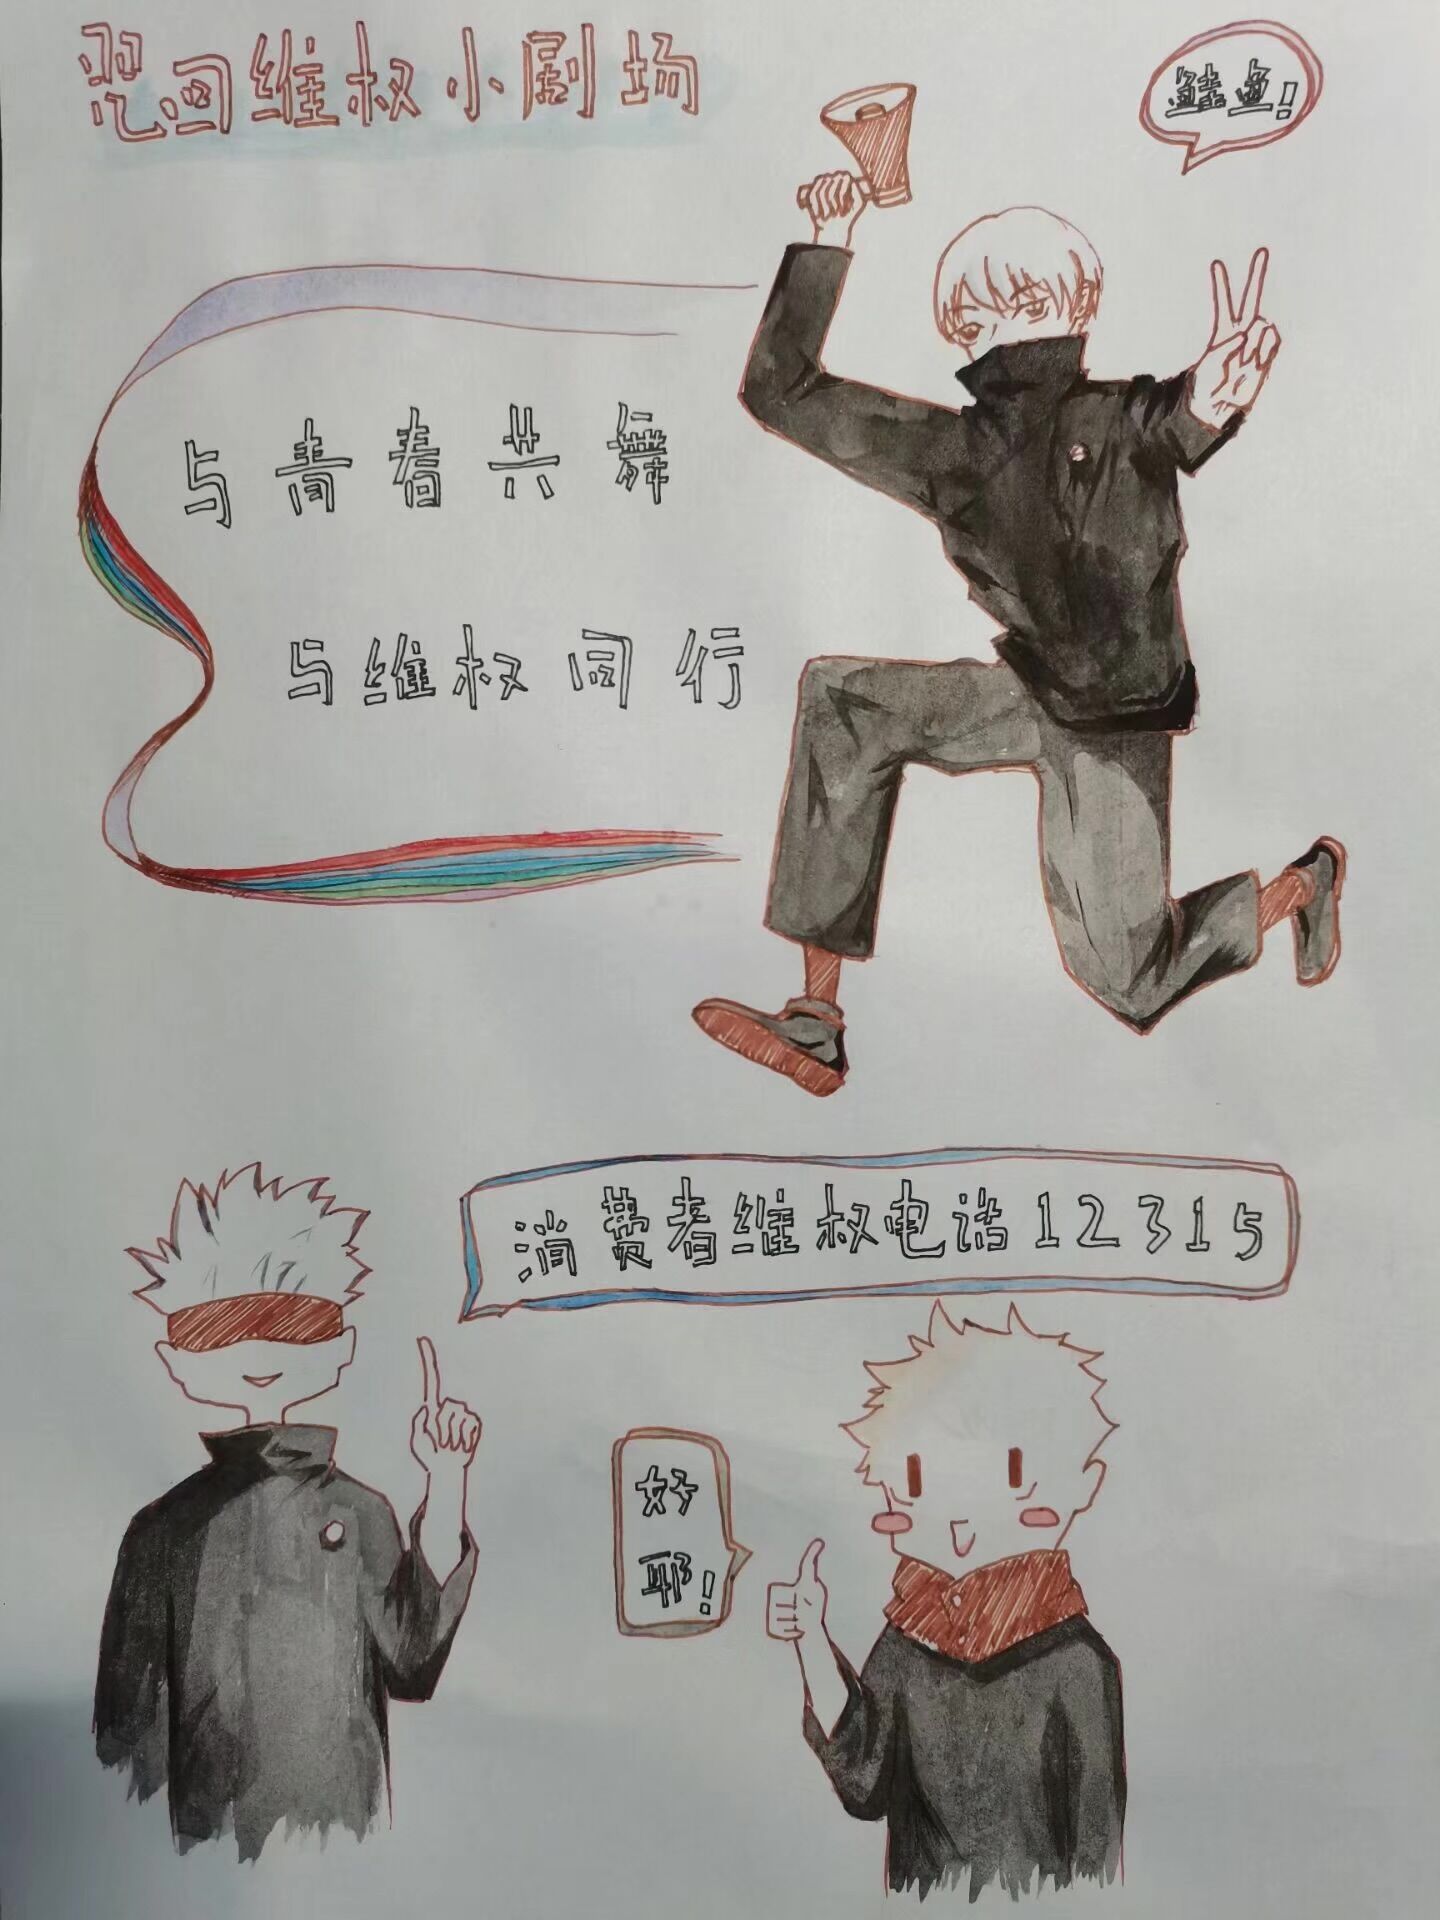 咒回维权小剧场
鲑鱼!
与青春共舞
与维权同行
消费者维权电话12315
好
耶!